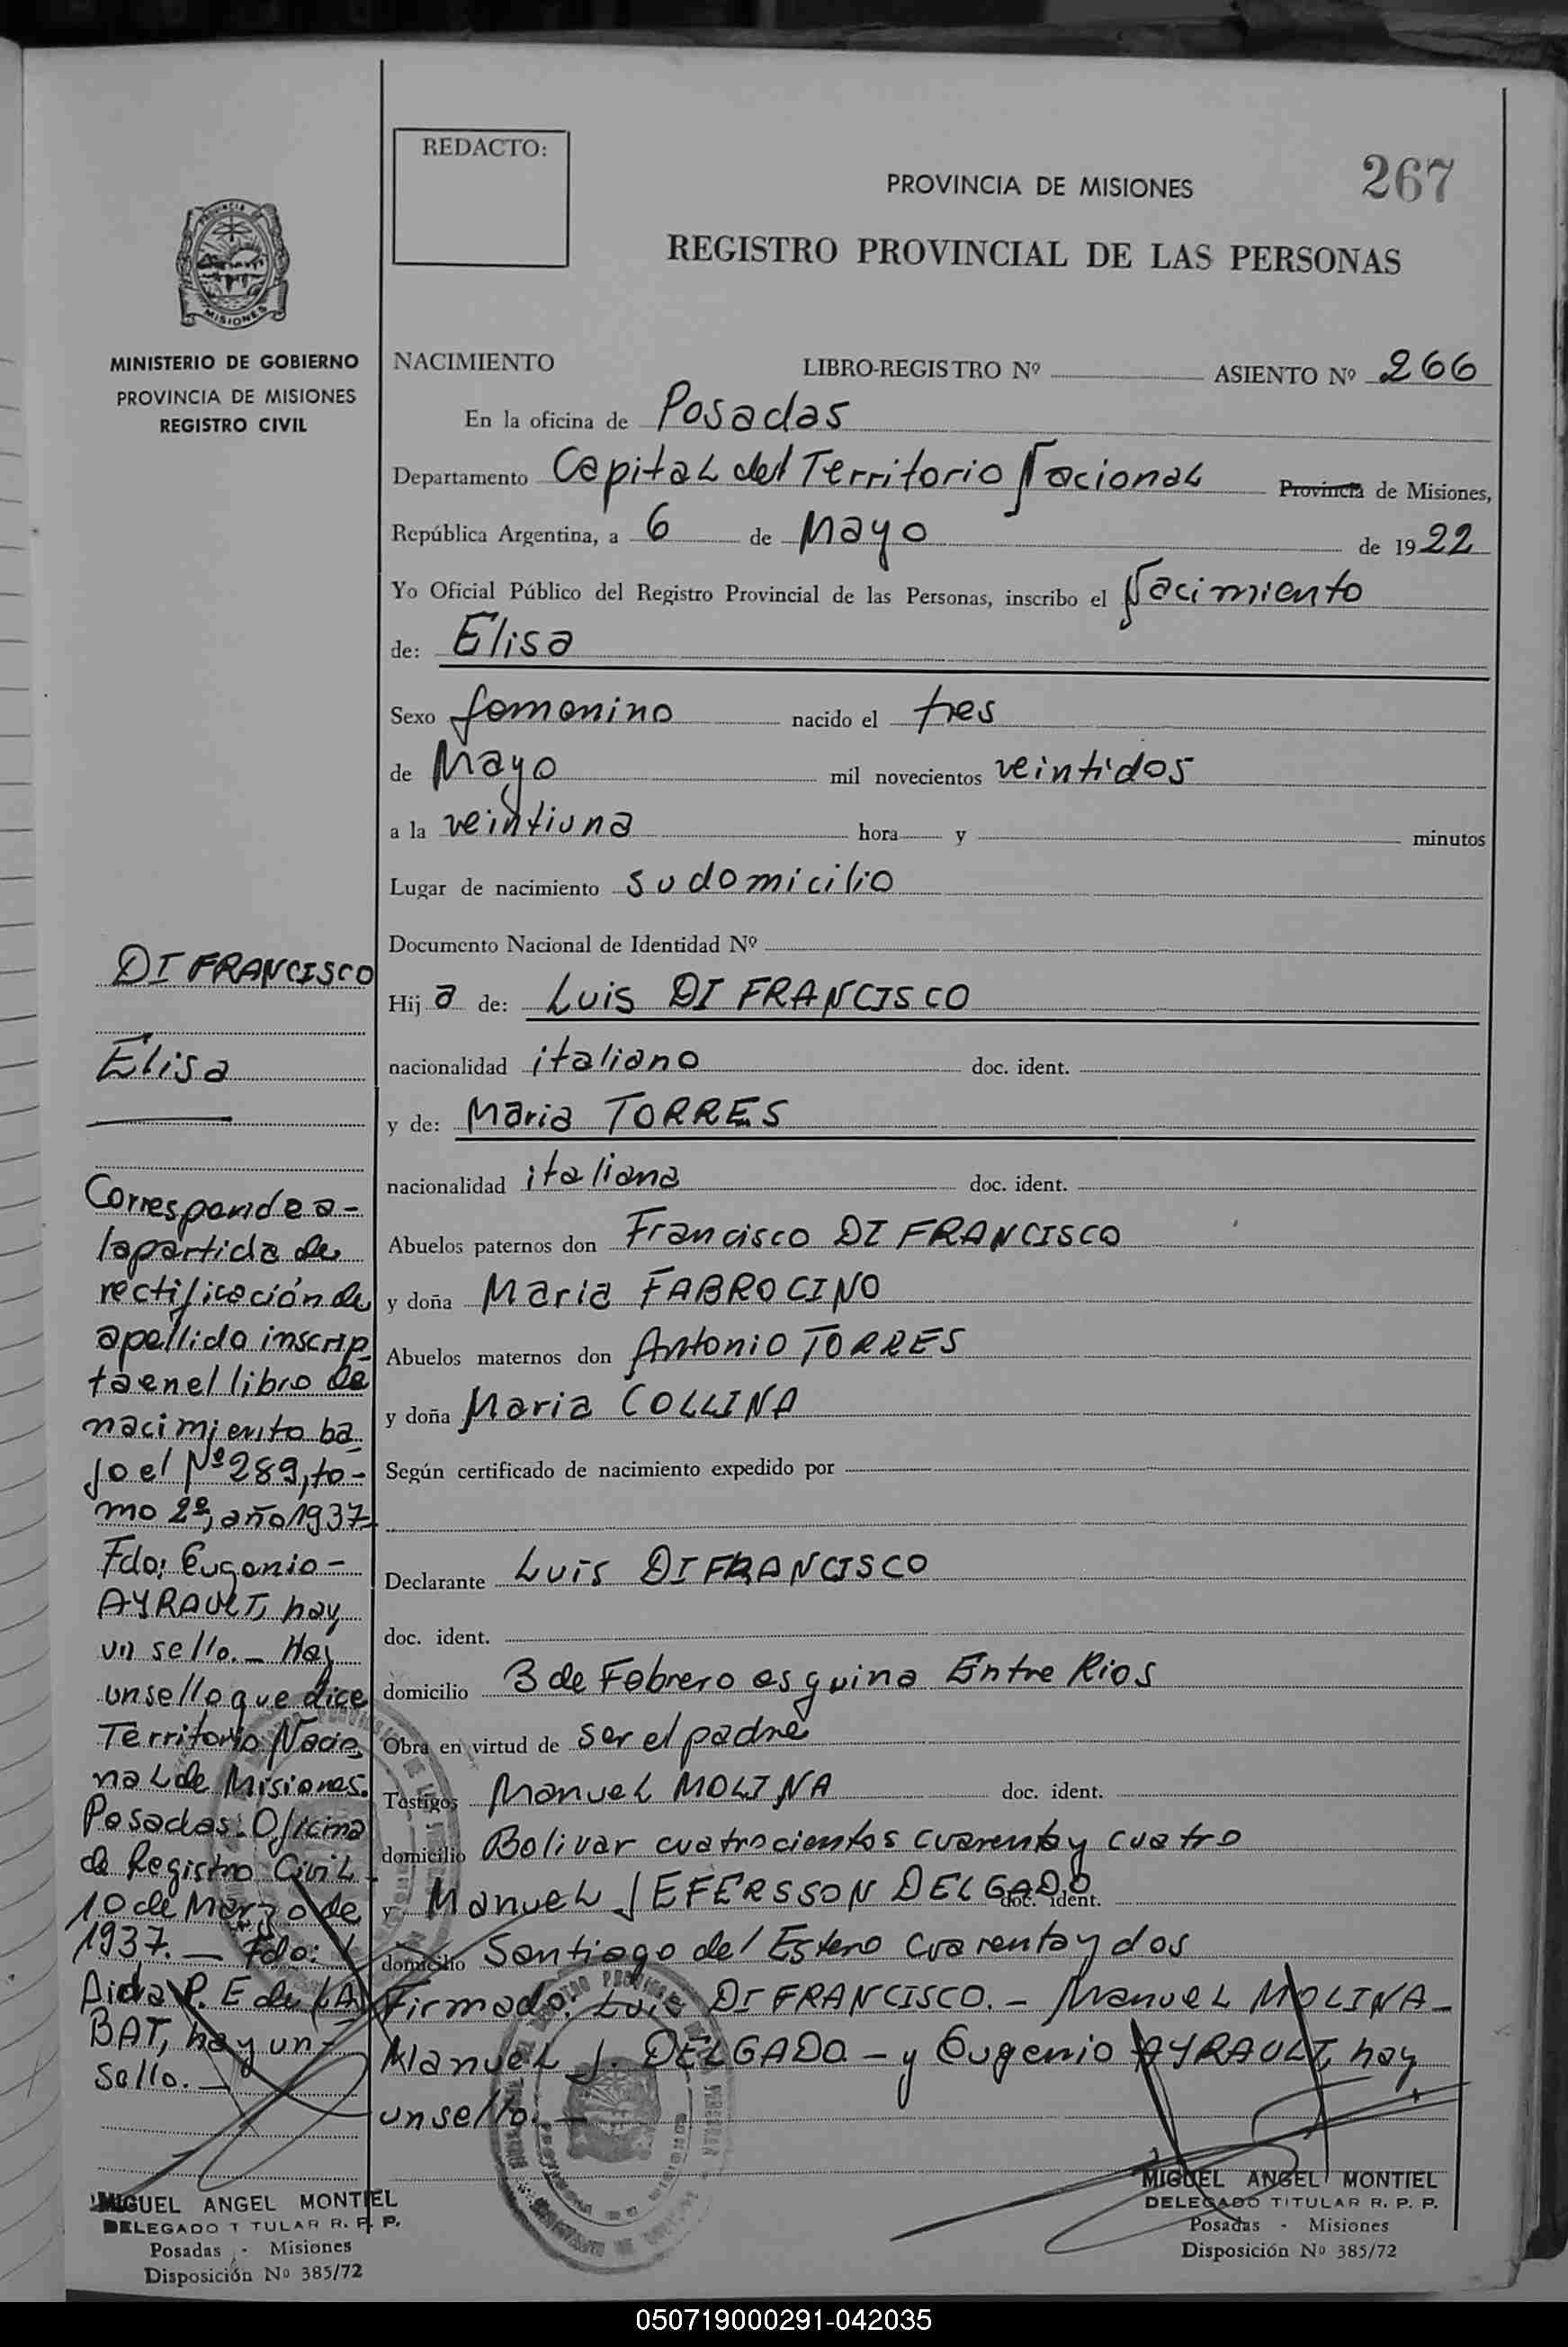 REDACTO:
PROVINCIA DE MISIONES
267
REGISTRO PROVINCIAL DE LAS PERSONAS
MISIONES
MINISTERIO DE GOBIERNO
PROVINCIA DE MISIONES
REGISTRO CIVIL
NACIMIENTO LIBRO-REGISTRO Nº ASIENTO Nº 266
En la oficina de Posadas
Departamento Capital del Territorio Nacional Provincia de Misiones,
República Argentina, a 6 de Mayo de 1922
Yo Oficial Público del Registro Provincial de las Personas, inscribo el Nacimiento
de: Elisa
Sexo femenino nacido el tres
de Mayo mil novecientos veintidos
a la veintiuna hora y minutos
Lugar de nacimiento su domicilio
Documento Nacional de Identidad Nº
Hija de: Luis DI FRANCISCO
nacionalidad italiano doc. ident.
y de: Maria TORRES
nacionalidad italiana doc. ident.
Abuelos paternos don Francisco DI FRANCISCO
y doña Maria FABROCINO
Abuelos maternos don Antonio TORRES
y doña Maria COLLINA
Según certificado de nacimiento expedido por
Declarante Luis DI FRANCISCO
doc. ident.
domicilio 3 de Febrero esquina Entre Rios
Obra en virtud de ser el padre
Testigos Manuel MOLINA doc. ident.
domicilio Bolivar cuatrocientos cuarenta y cuatro
y Manuel JEFERSSON DELGADO doc. ident.
domicilio Santiago del Estero cuarenta y dos
Firmado: Luis DI FRANCISCO.- Manuel MOLINA-
Manuel J. DELGADO - y Eugenio AYRAULT, hay
un sello.-
DI FRANCISCO
Elisa
Corresponde a-
la partida de
rectificación de
apellido inscrip-
ta en el libro de
nacimiento ba-
jo el Nº 289, to-
mo 2º, año 1937-
Fdo: Eugenio-
AYRAULT, hay
un sello.- Hay
un sello que dice
Territorio Nacio-
nal de Misiones.
Posadas. Oficina
de Registro Civil-
10 de Marzo de
1937.- Fdo:
Aida P. E de LA
BAT, hay un-
sello.-
MIGUEL ANGEL MONTIEL
DELEGADO T TULAR R. P. P.
Posadas - Misiones
Disposición Nº 385/72
MIGUEL ANGEL MONTIEL
DELEGADO TITULAR R. P. P.
Posadas - Misiones
Disposición Nº 385/72
050719000291-042035